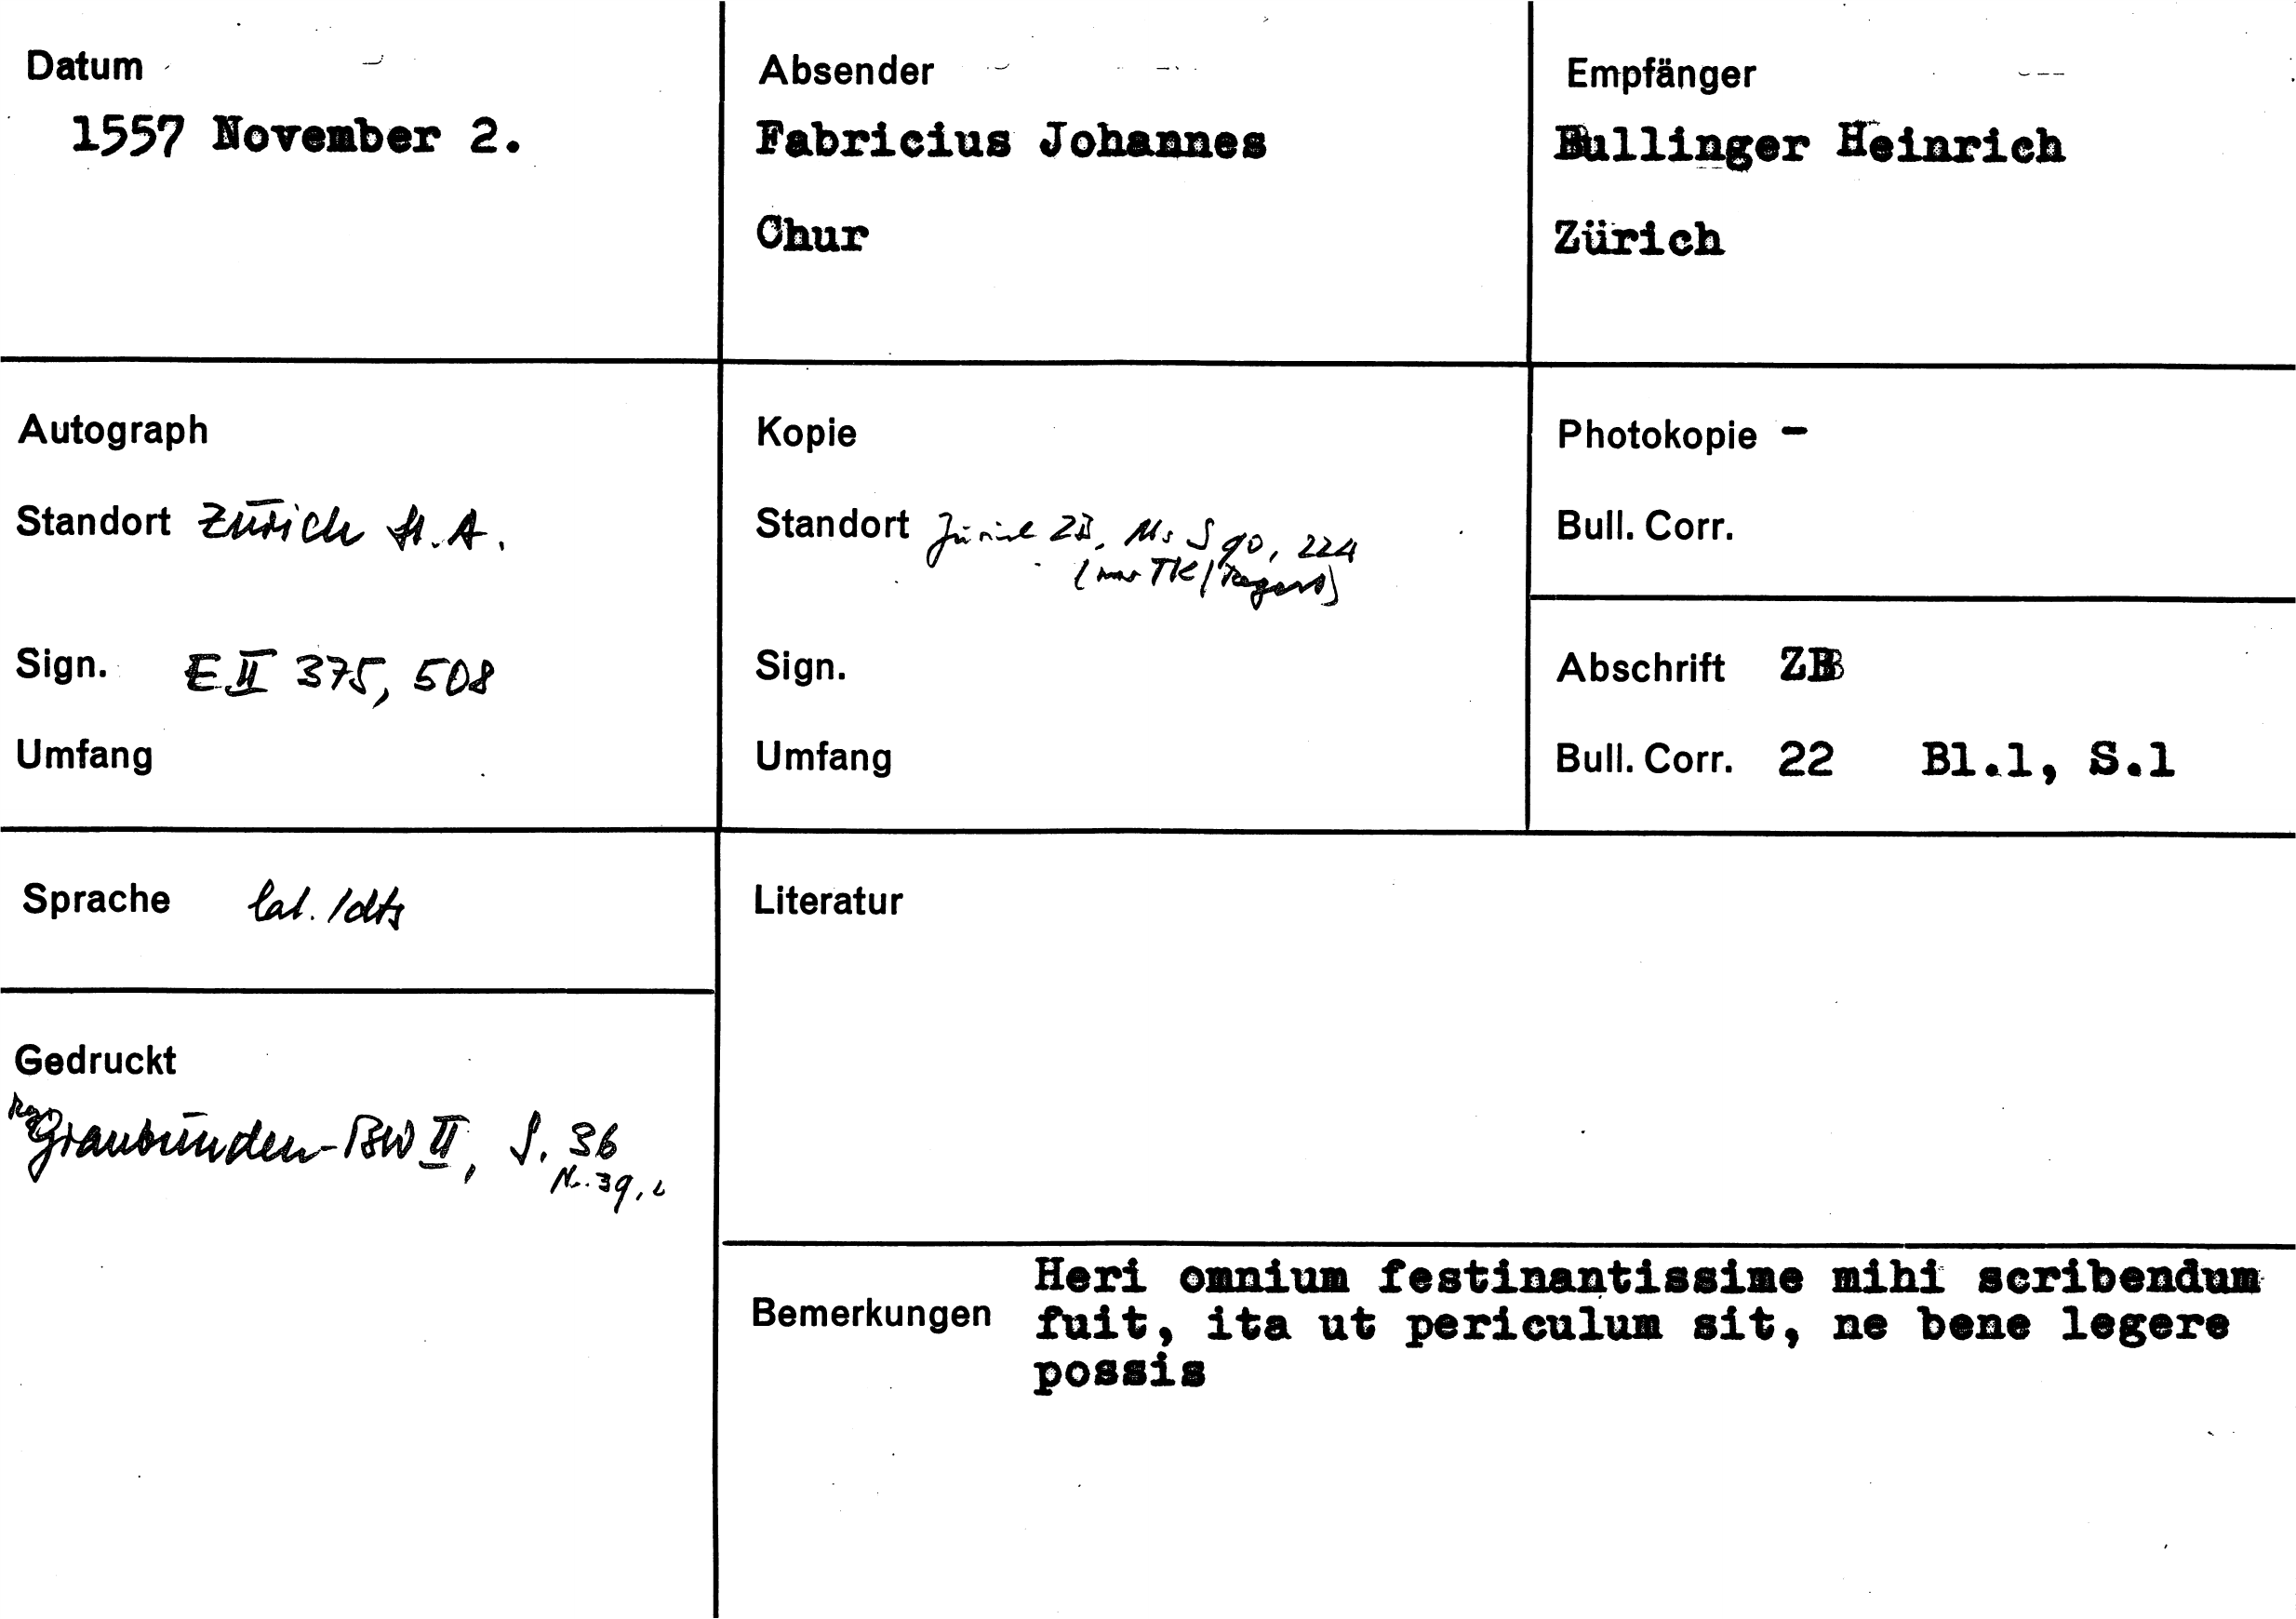 Datum
1557 November 2.
Absender
Fabricius Johannes
Chur
Empfänger
Bullinger Heinrich
Zürich
Autograph
Standort Zürich St. A.
Sign. E II 375, 508
Umfang
Kopie
Standort Zürich ZB, Ms S 90, 224
(nur TK/Regest)
Sign.
Umfang
Photokopie -
Bull. Corr.
Abschrift ZB
Bull. Corr. 22 Bl.1, S.1
Sprache lat./dts
Gedruckt
Reg. Graubünden-BW II, S. 36
Nr. 39,
Literatur
Bemerkungen
Heri omnium festinantissime mihi scribendum
fuit, ita ut periculum sit, ne bene legere
possis